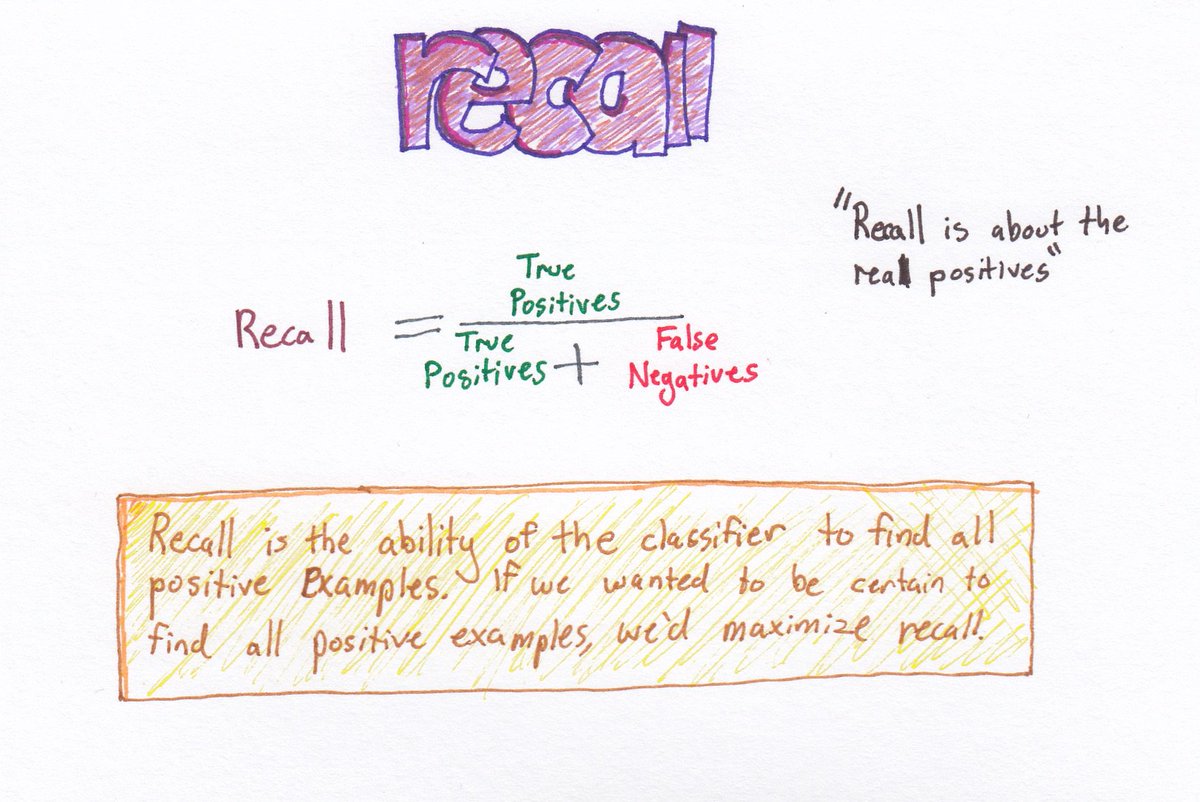 recall
"Recall is about the
real positives"
True
Positives
Recall =
True
Positives + False
Negatives
Recall is the ability of the classifier to find all
positive Examples. If we wanted to be certain to
find all positive examples, we'd maximize recall.